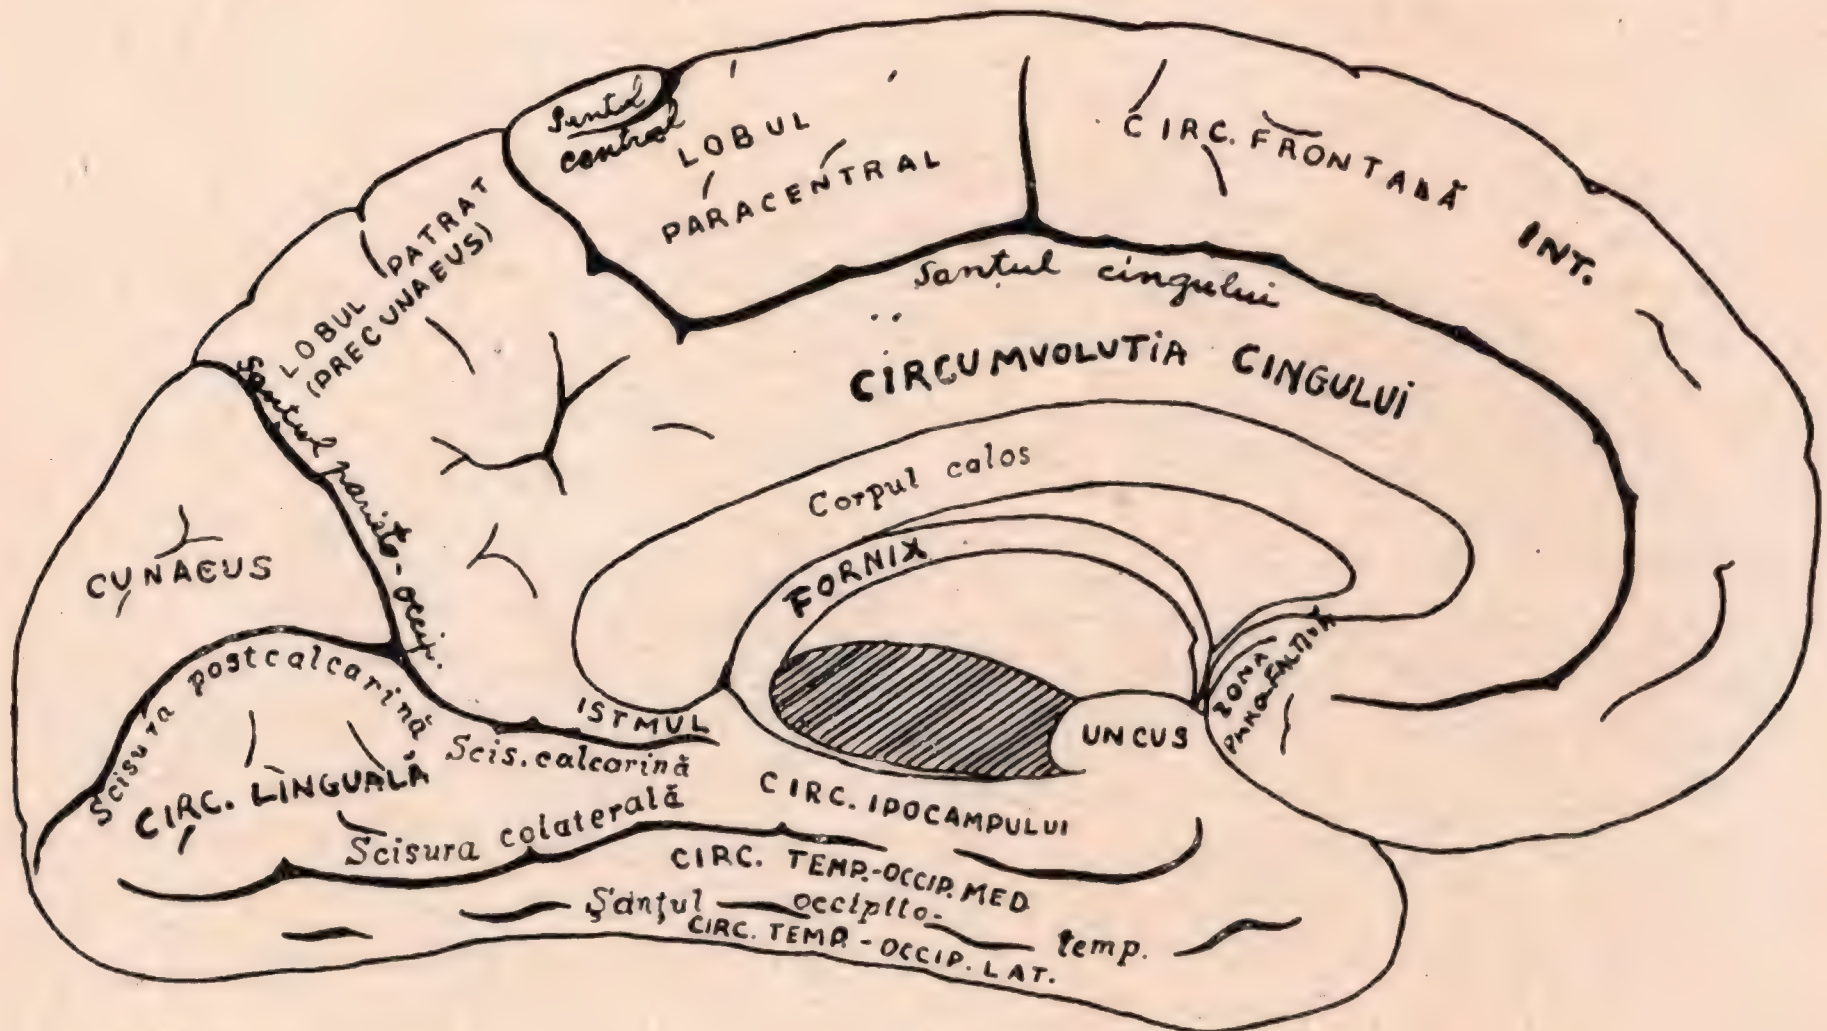 Șentul
central
LOBUL
PARACENTRAL
CIRC. FRONTALĂ INT.
LOBUL PATRAT
(PRECUNAEUS)
Santul cingului
CIRCUMVOLUTIA CINGULUI
Santul parieto-occip.
Corpul calos
FORNIX
CUNAEUS
Scisura postcalcarină
ISTMUL
UNCUS
ZONA
Scis. calcarină
CIRC. LINGUALĂ
CIRC. IPOCAMPULUI
Scisura colaterală
CIRC. TEMP.-OCCIP. MED
Șanțul occipito- temp.
CIRC. TEMP. - OCCIP. LAT.